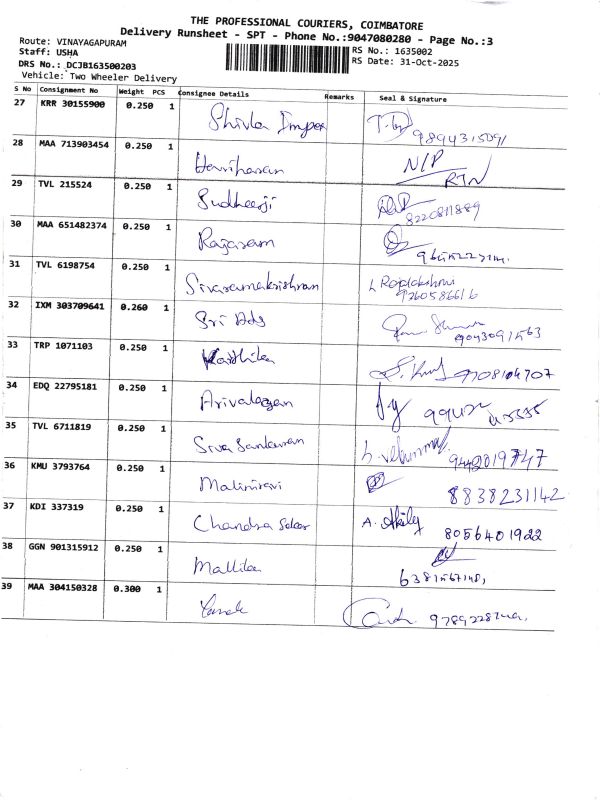 THE PROFESSIONAL COURIERS, COIMBATORE
Delivery Runsheet - SPT - Phone No.:9047080280 - Page No.:3
Route: VINAYAGAPURAM
Staff: USHA
DRS No.: DCJB163500203
Vehicle: Two Wheeler Delivery
RS No.: 1635002
RS Date: 31-Oct-2025
S No Consignment No Weight PCS Consignee Details Remarks Seal & Signature
27 KRR 30155900 0.250 1 Shivla Impex 9894315091
28 MAA 713903454 0.250 1 Hariharan N/P RTN
29 TVL 215524 0.250 1 Sudheerji 8220811889
30 MAA 651482374 0.250 1 Rajaram
31 TVL 6198754 0.250 1 Sivaramakrishnan L Rajalakshmi 9260586616
32 IXM 303709641 0.260 1 Sri Ads 9043091563
33 TRP 1071103 0.250 1 Karthika 9708104707
34 EDQ 22795181 0.250 1 Arivalagan
35 TVL 6711819 0.250 1 Siva Sankaran 9442019747
36 KMU 3793764 0.250 1 Maliniravi 8838231142
37 KDI 337319 0.250 1 Chandra Sekar A. 8056401922
38 GGN 901315912 0.250 1 Mallika
39 MAA 304150328 0.300 1